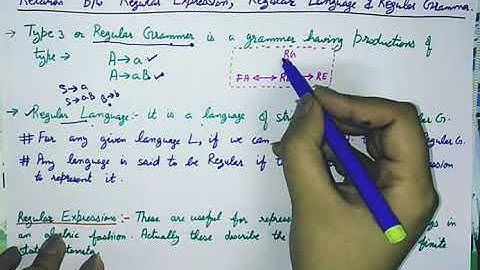 Relation b/w Regular Expression, Regular Language & Regular Grammer.
→ Type 3 or Regular Grammer is a grammer having productions of
type → A→a ✓
A→aB ✓
S→a
S→aB B→b
RG
FA ↔ → RE
→ Regular Language :- it is a language of G.
# For any given language L, if we can G.
# Any language is said to be Regular if
to represent it.
Regular Expressions :- These are useful for in
an fashion. Actually these describe the finite